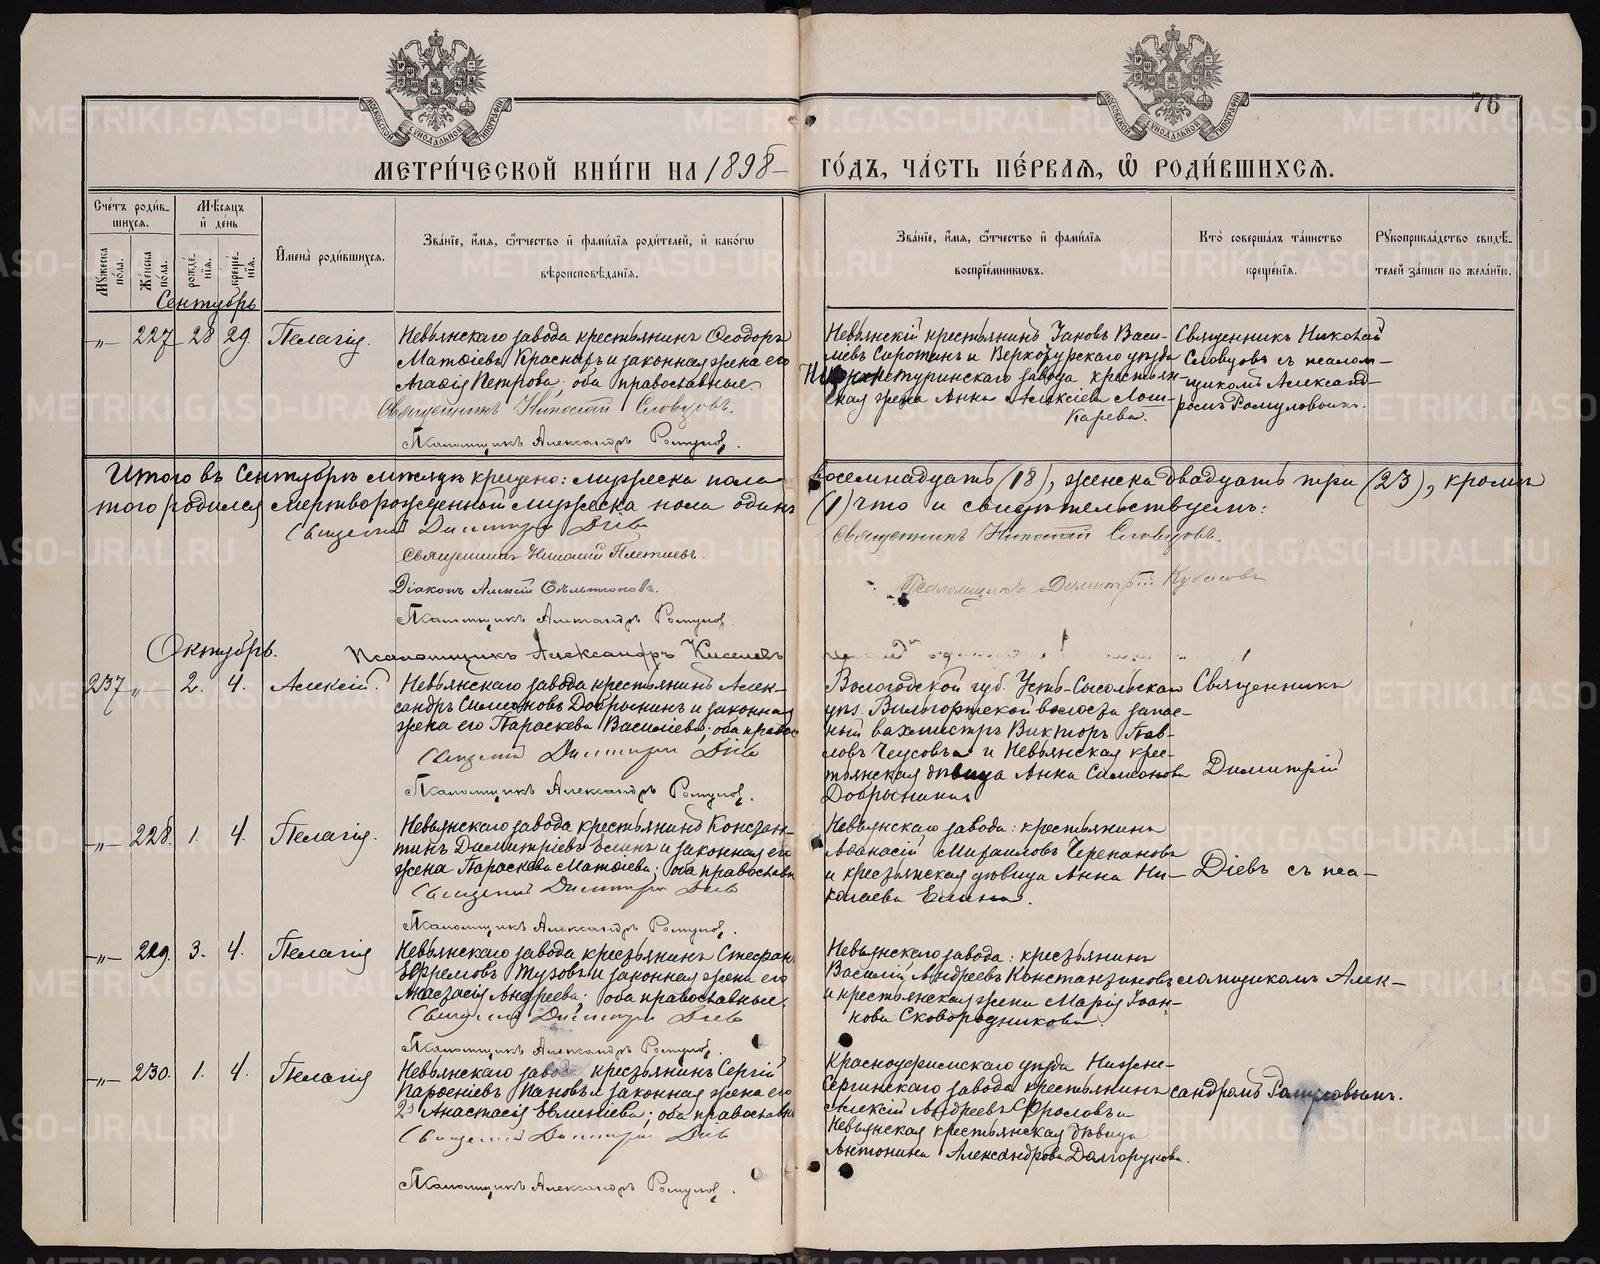 76
МЕТРИ́ЧЕСКОЙ КНИ́ГИ НА 1898 ГО́ДЪ, ЧА́СТЬ ПЕ́РВАѦ, Ѽ РОДИ́ВШИХСѦ.
Сче́тъ роди́в-
шихсѧ.
Мѣ́сѧцъ
и҆ де́нь
Мꙋ́жеска по́ла.
Же́нска по́ла.
рожде́-
нїѧ.
креще́-
нїѧ.
И҆мена̀ роди́вшихсѧ.
Зва́нїе, и҆́мѧ, ѻ҆́тчество и҆ фами́лїѧ роди́телей, и҆ како́гѡ
вѣроисповѣ́данїѧ.
Зва́нїе, и҆́мѧ, ѻ҆́тчество и҆ фами́лїѧ
воспрїе́мникѡвъ.
Кто̀ соверша́лъ та́инство
креще́нїѧ.
Рꙋкоприкла́дство свидѣ́-
телей за́писи по жела́нїю.
Сентябрь
-„- 227 28 29 Пелагія.
Невьянскаго завода крестьянинъ Ѳеодоръ
Матѳіевъ Краснаръ и законная жена его
Агаѳія Петрова; оба православные
Священникъ Николай Словцовъ.
Псаломщикъ Александръ Ромулов.
Невьянскій крестьянинъ Іаковъ Васи-
льевъ Сиротинъ и Верхотурскаго уѣзда
Нижнетуринскаго завода крестьян-
ская жена Анна Алексіева Лош-
карева.
Священникъ Николай
Словцовъ съ псалом-
щикомъ Александ-
ромъ Ромуловымъ.
Итого въ Сентябрѣ мѣсяцѣ крещено: мужеска пола восемнадцать (18), женска двадцать три (23), кромѣ
того родился мертворожденный мужеска пола одинъ (1) что и свидѣтельствуемъ:
Священникъ Димитрій Діевъ
Священникъ Николай Словцовъ.
Священникъ Николай Плотниевъ.
Діаконъ Алексій
Псаломщикъ Димитрій Кубасовъ
Псаломщикъ Александръ Ромулов.
Октябрь.
Псаломщикъ Александръ Киселевъ
237 -„- 2. 4. Алексій.
Невьянскаго завода крестьянинъ Алек-
сандръ Симеоновъ Добрынинъ и законная
жена его Параскева Васильева; оба правос
Священникъ Димитрій Діевъ
Псаломщикъ Александръ Ромулов.
Вологодской губ. Усть-Сысольскаго
уѣз. Вильгортской волости запас-
ный вахмистръ Викторъ Пав-
ловъ Чеусовъ и Невьянская крес-
тьянская дѣвица Анна Симеонова
Добрынина
Священникъ
Димитрій
-„- 228. 1. 4. Пелагія.
Невьянскаго завода крестьянинъ Констан-
тинъ Димитріевъ Елинъ и законная его
жена Параскева Матѳіева; оба православны
Священникъ Димитрій Діевъ
Псаломщикъ Александръ Ромулов.
Невьянскаго завода: крестьянинъ
Аѳанасій Михаиловъ Черепановъ
и крестьянская дѣвица Анна Ни-
колаева Елина.
Діевъ съ пса-
-„- 229. 3. 4. Пелагія
Невьянскаго завода крестьянинъ Стефанъ
Ефремовъ Тузовъ и законная жена его
Анастасія Андреева; оба православные
Священникъ Димитрій Діевъ
Псаломщикъ Александръ Ромулов.
Невьянскаго завода: крестьянинъ
Василій Андреевъ Константиновъ
и крестьянская жена Марія Іоан-
нова Сковородникова.
ломщикомъ Алек-
-„- 230. 1. 4. Пелагія
Невьянскаго завод крестьянинъ Сергій
Парѳеніевъ Пановъ и законная жена его
Анастасія Евгеніева; оба православны
Священникъ Димитрій Діевъ
Псаломщикъ Александръ Ромулов.
Красноуфимскаго уѣзда Нижне-
Сергинскаго завода крестьянинъ
Алексій Андреевъ Фроловъ и
Невьянская крестьянская дѣвица
Антонина Александрова Долгорукова.
сандромъ Ромуловымъ.